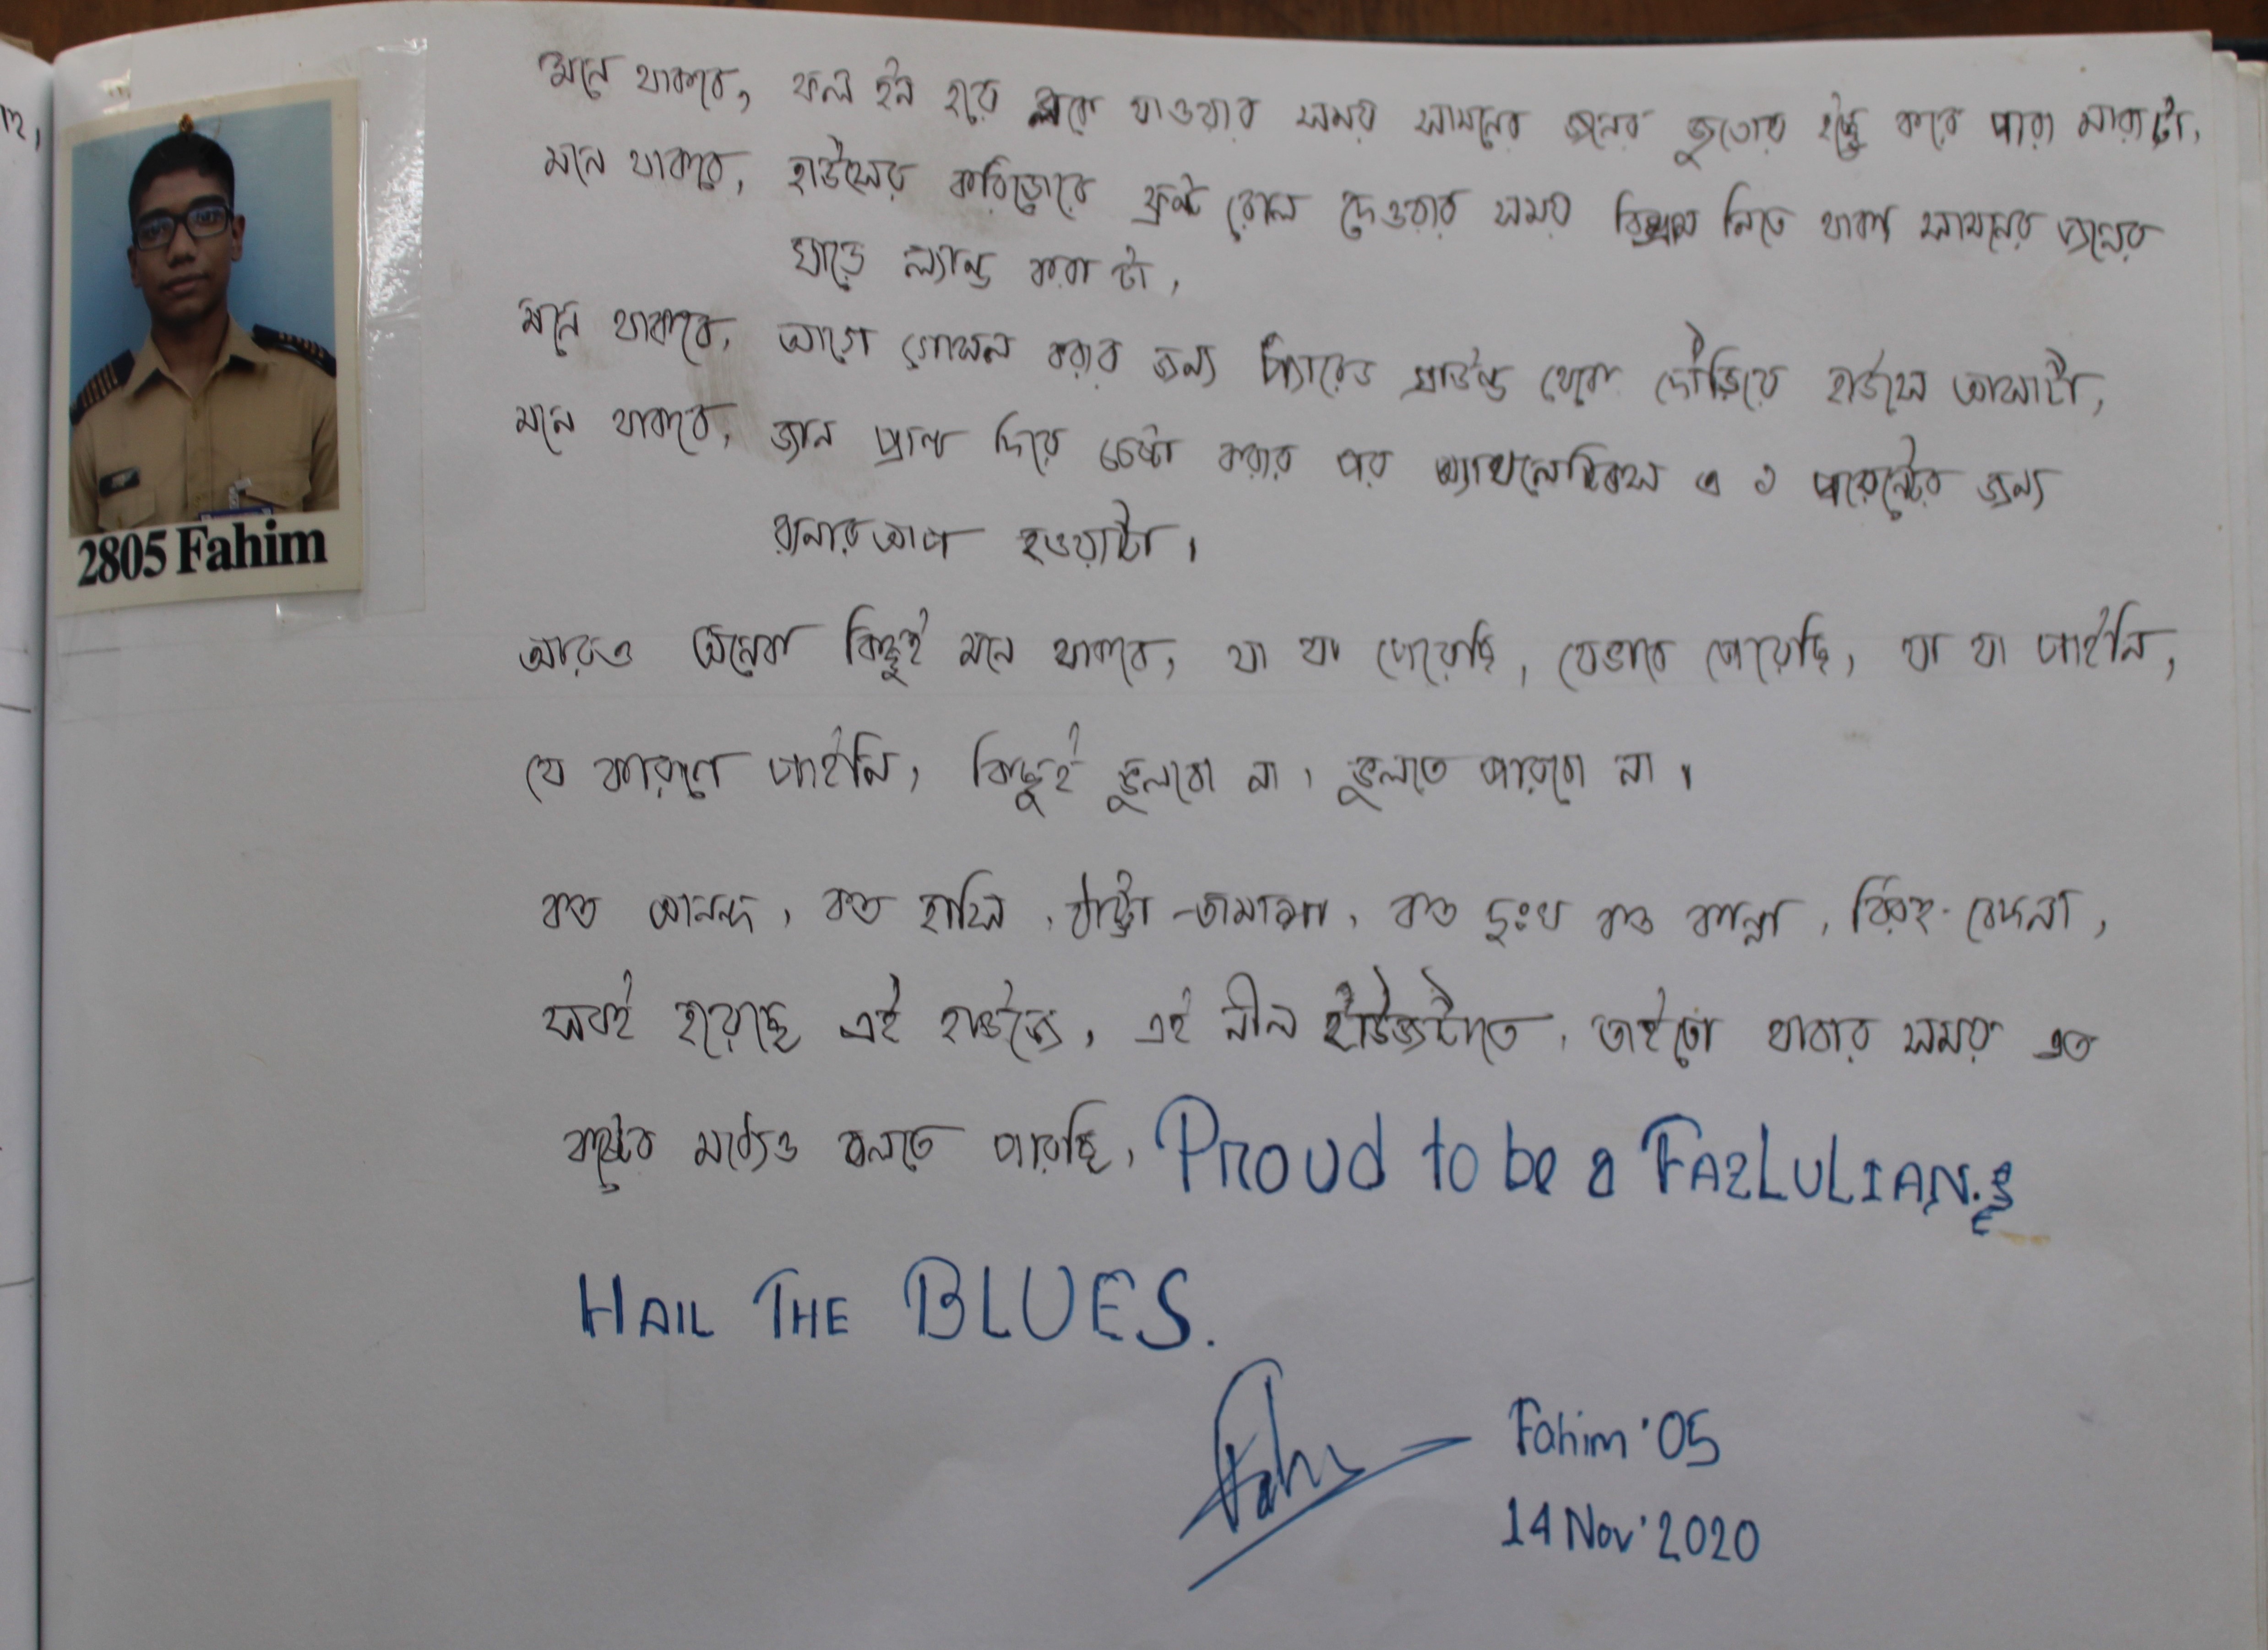 2805 Fahim
মনে থাকবে, ফল ইন হয়ে যাওয়ার সময় সামনের জনের জুতোয় ইচ্ছে করে পারা মারাটা,
মনে থাকবে, হাউসের করিডোরে ফ্রন্ট রোল দেওয়ার সময় নিতে থাকা সামনের জনের
ঘাড়ে ল্যান্ড করা টা,
মনে থাকবে, আগে গোসল করার জন্য প্যারেড গ্রাউন্ড থেকে দৌড়িয়ে হাউসে আসাটা,
মনে থাকবে, জান প্রাণ দিয়ে চেষ্টা করার পর অ্যাথলেটিকস এ ১ পয়েন্টের জন্য
রানারআপ হওয়াটা।
আরও অনেক কিছুই মনে থাকবে, যা যা পেয়েছি, যেভাবে পেয়েছি, যা যা পাইনি,
যে কারণে পাইনি, কিছুই ভুলবো না, ভুলতে পারবো না।
কত আনন্দ, কত হাসি, ঠাট্টা-তামাসা, কত দুঃখ কত কান্না, বিরহ-বেদনা,
সবই হয়েছে এই হাউজে, এই নীল হাউজটাতে, তাইতো যাবার সময় এত
কষ্টের মধ্যেও বলতে পারছি, Proud to be a FAZLULIAN.
HAIL THE BLUES.
Fahim
Fahim '05
14 Nov' 2020